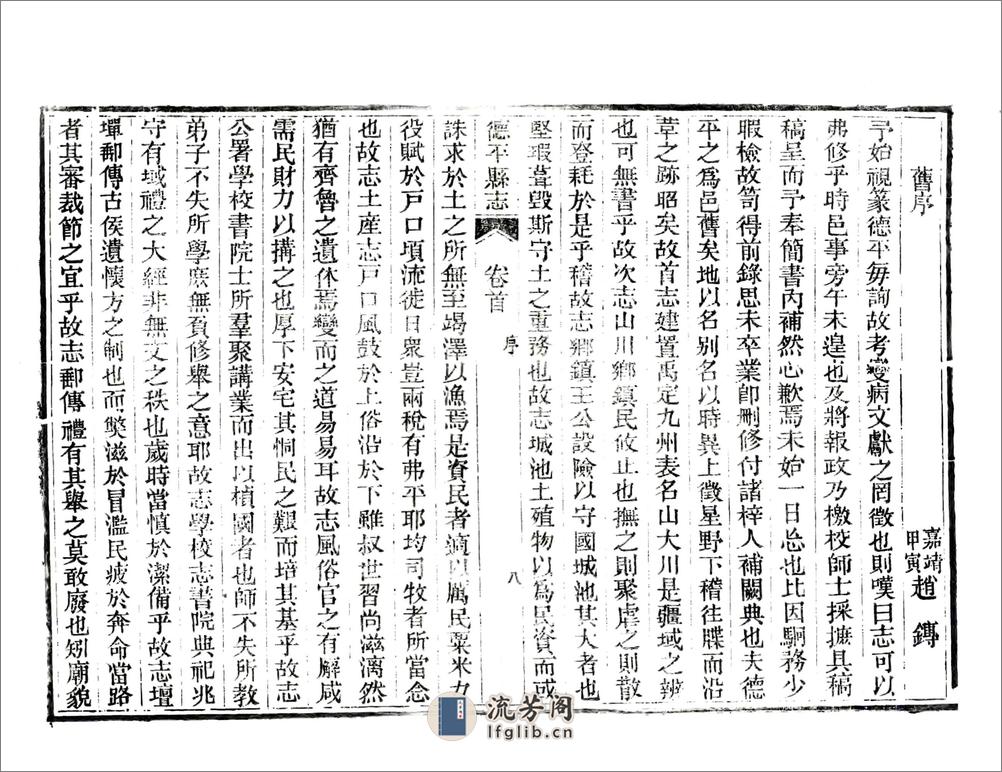 舊序
嘉靖甲寅 趙鏄
予始視篆德平每詢故考變病文獻之罔徵也則嘆曰志可以
弗修乎時邑事旁午未遑也及將報政乃檄校師士採摭具稿
稿呈而予奉簡書內補然心歉焉未始一日忘也比因駉務少
暇檢故笥得前錄思未卒業卽刪修付諸梓人補闕典也夫德
平之爲邑舊矣地以名別名以時異上徵星野下稽往牒而沿
革之跡昭矣故首志建置禹定九州表名山大川是疆域之辨
也可無書乎故次志山川鄉鎮民攸止也撫之則聚虐之則散
而登耗於是乎稽故志鄉鎮王公設險以守國城池其大者也
堅瑕葺毀斯守土之重務也故志城池土殖物以爲民資而或
德平縣志
卷首
序
八
誅求於土之所無至竭澤以漁焉是資民者適以厲民粟米力
役賦於戶口頃流徙日衆豈兩稅有弗平耶均司牧者所當念
也故志土產志戶口風鼓於上俗沿於下雖叔世習尚滋漓然
猶有齊魯之遺休焉變而之道易易耳故志風俗官之有廨咸
需民財力以搆之也厚下安宅其恫民之艱而培其基乎故志
公署學校書院士所羣聚講業而出以楨國者也師不失所教
弟子不失所學庶無負修舉之意耶故志學校志書院與祀兆
守有域禮之大經非無文之秩也歲時當慎於潔備乎故志壇
墠郵傳古侯遺懷方之制也而獘滋於冒濫民疲於奔命當路
者其審裁節之宜乎故志郵傳禮有其舉之莫敢廢也矧廟貌
流芳阁
lfglib.cn